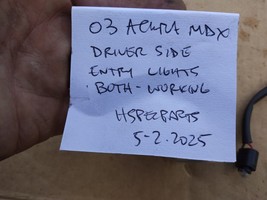 03 ACURA MDX
DRIVER SIDE
ENTRY LIGHTS
BOTH - WORKING
HSPECPARTS
5-2.2025